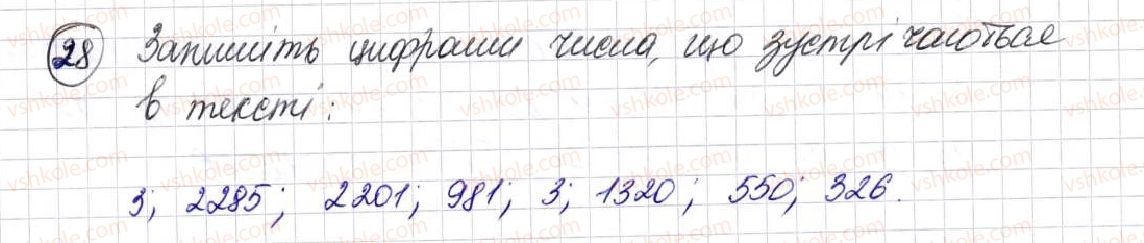 28 Запишіть цифрами числа, що зустрічаються
в тексті:
3; 2285; 2201; 981; 3; 1320; 550; 326.